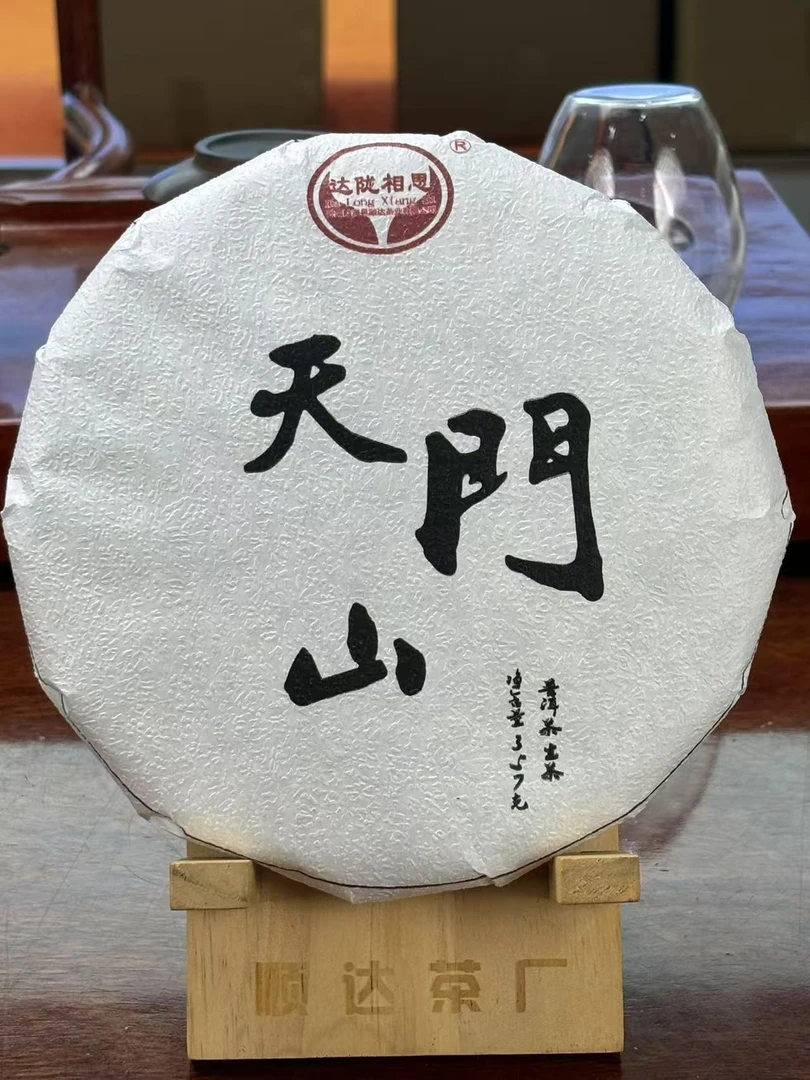 达陇相思
®
天
門
山
普洱茶生茶
净含量357克
顺达茶厂